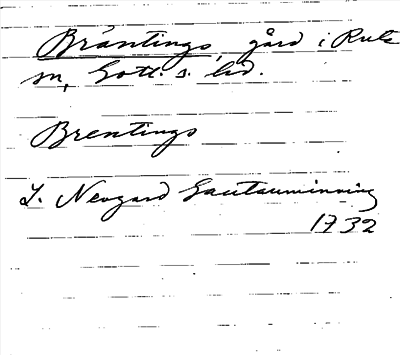 Bräntings, gård i Rute
sn, Gotl. s. hd.
Brentings
J. Neogard Gautauminning
1732